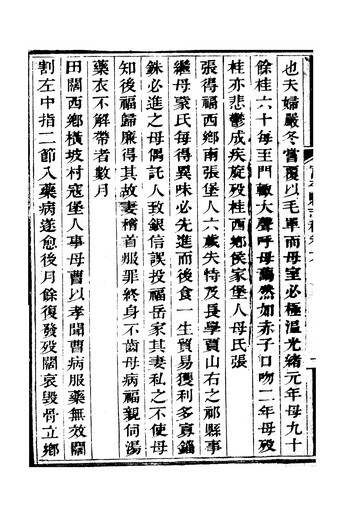 也夫婦嚴冬嘗覆以毛單而母室必極溫光緒元年母九十
餘桂六十每至門輒大聲呼母藹然如赤子口吻二年母歿
桂亦悲鬱成疾旋歿桂西鄉侯家堡人母氏張
張得福西鄉南張堡人六歲失恃及長學賈山右之祁縣事
繼母裴氏每得異味必先進而後食一生貿易獲利多寡錙
銖必進之母偶託人致銀信誤投福岳家其妻私之不使母
知後福歸廉得其故妻稽首服罪終身不齒母病福親伺湯
藥衣不解帶者數月
田闊西鄉橫坡村寇堡人事母曹以孝聞曹病服藥無效闊
割左中指二節入藥病遂愈後月餘復發歿闊哀毀骨立鄉